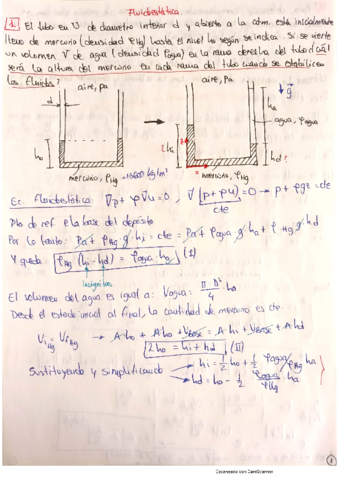 Fluidoestática
1. El tubo en U de diametro interior d y abierto a la atm. está inicialmente
lleno de mercurio (densidad ρHg) hasta el nivel ho según se indica. Si se vierte
un volumen V de agua (densidad ρagua) en la rama derecha del tubo ¿cúal
será la altura del mercurio en cada rama del tubo cuando se estabilicen
los fluidos?
aire, pa
aire, pa
d
g
ha
agua, ρagua
ho
hi
hd?
mercurio, ρHg = 13600 kg/m³
mercurio, ρHg
Ec. Fluidoestática: ∇p + ρ∇U = 0, ∇(p + ρU) = 0 → p + ρgz = cte
cte
Plno de ref el a base del depósito
Por lo tanto: Pa + ρHg g hi = cte = Pa + ρagua g ha + ρHg g hd
Y queda: ρHg (hi - hd) = ρagua ha (I)
incógnitas
El volumen del agua es igual a: Vagua = π D²/4 ha
Desde el estado inicial al final, la cantidad de mercurio es cte.
ViHg = VfHg → A ho + A ho + Vbase = A hi + Vbase + A hd
2ho = hi + hd (II)
Sustituyendo y simplificando
hi = ho + 1/2 ρagua/ρHg ha
hd = ho - 1/2 ρagua/ρHg ha
1
Escaneado con CamScanner